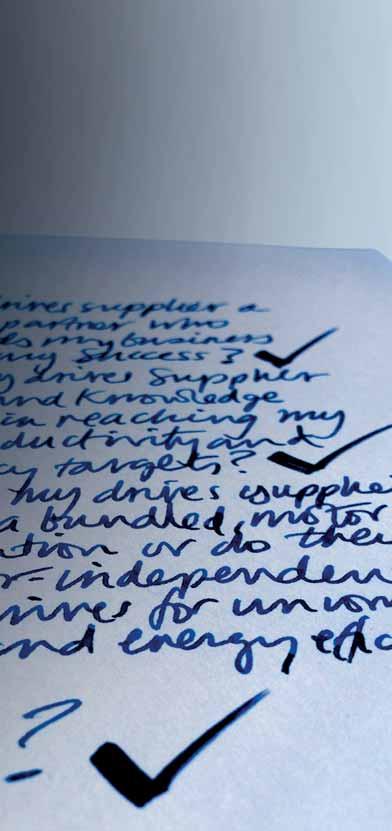 drives supplier a
partner who
es my business
my success?
y drives supplier
and knowledge
in reaching my
ductivity and
cy targets?
my drives supplie
a bundled motor
ation or do they
r-independen
rives for uncom
and energy effic
?